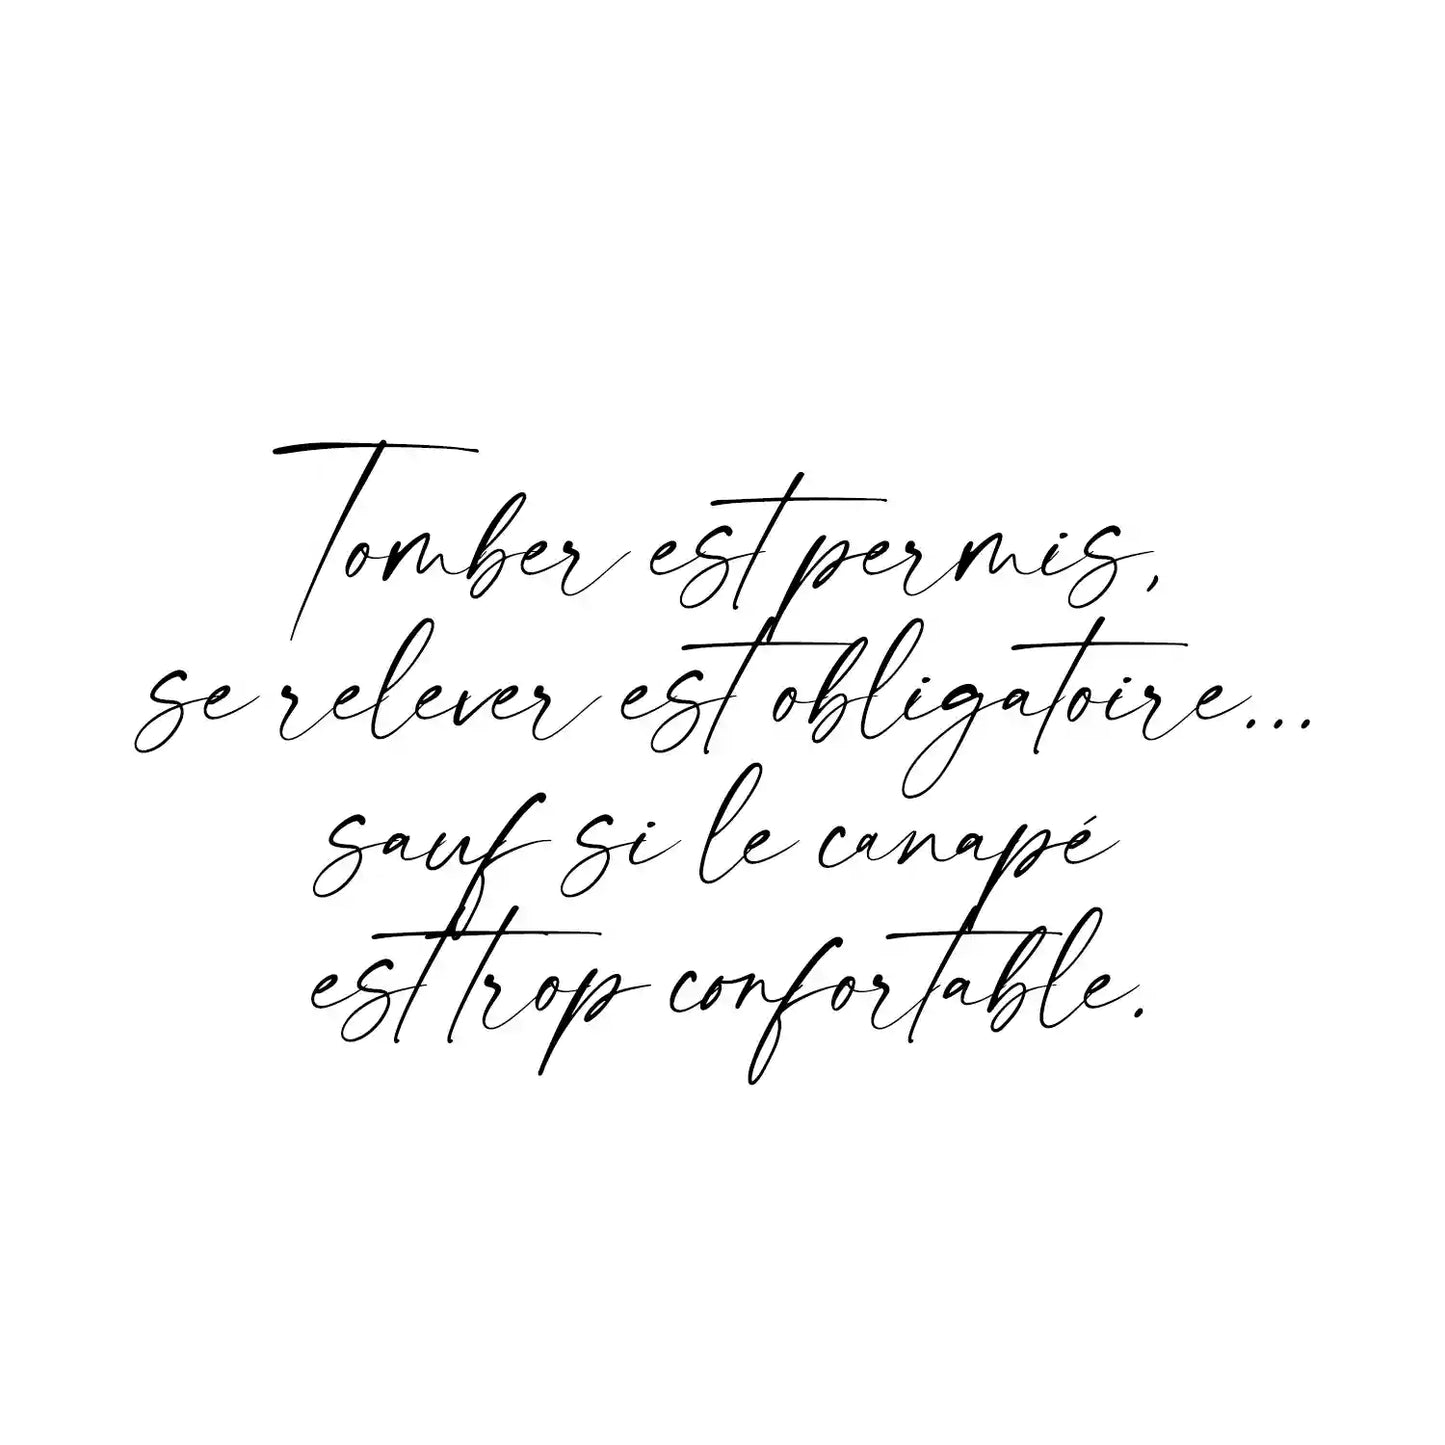 Tomber est permis,
se relever est obligatoire...
sauf si le canapé
est trop confortable.